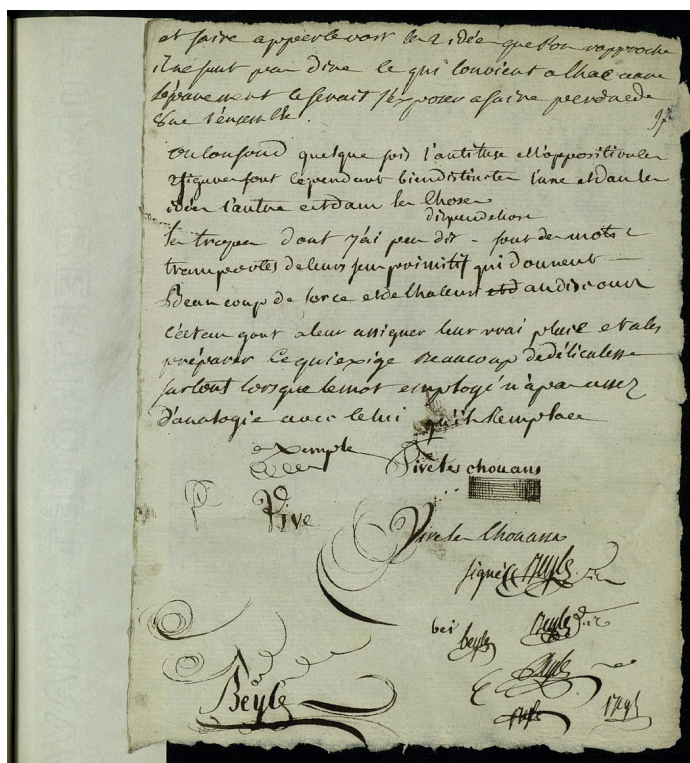 et faire appercevoir les 2 idées que l'on rapproche
il ne faut pas dire ce qui convient a chacune
séparement ce serait s'exposer a faire perdre de
vue l'ensemble.
97
on confond quelque fois l'antitese et l'opposition ces
2 figures sont cependant bien distinctes l'une est dans les
idées l'autre est dans les choses
les tropes dont j'ai peu dit - sont des mots
transportés de leurs sens primitif qui donnent
Beaucoup de force et de chaleurs au discours
c'est au gout a leur assigner leur vrai place et a les
préparer ce qui exige Beaucoup de délicatesse
surtout lorsque le mot employé n'a pas assez
d'analogie avec celui qu'il Remplace
exemple Vive les chouans
Vive
Vive les Chouans
signé Beyle
bei beyle Beyle
Beyle
Beyle